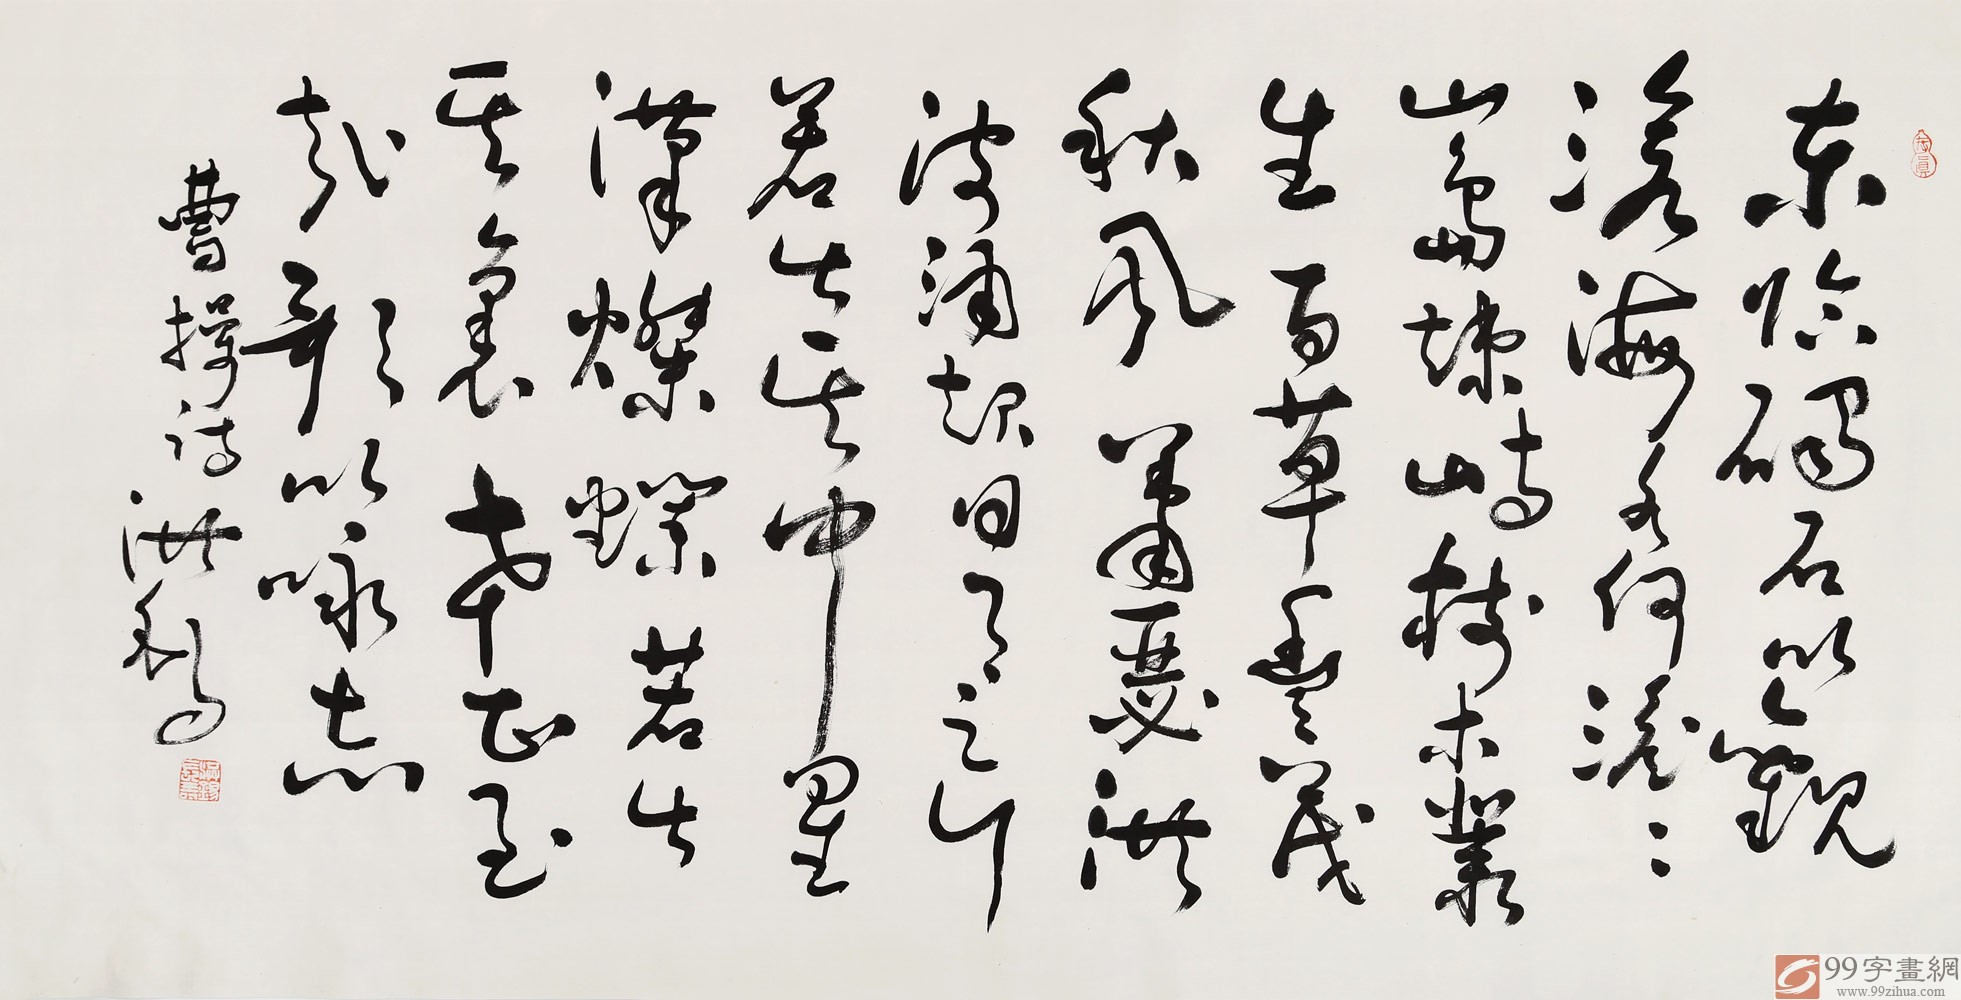 东临碣石以觀
滄海水何澹々
山島竦峙樹木叢
生百草豐茂
秋風蕭瑟洪
波涌起日月之行
若出其中星
漢燦爛若出
其裏幸甚至
哉歌以咏志
曹操诗洪
99字畫網
www.99zihua.com